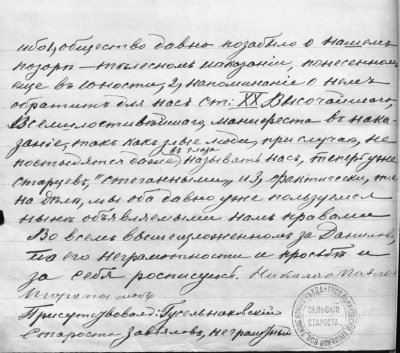 ибо 1, общество давно позабыло о нашемъ
позорѣ — тѣлесномъ наказаніи, понесенномъ
еще въ юности, 2, напоминаніе о немъ
обратитъ для насъ ст: XX Высочайшаго,
Всемилостивѣйшаго, манифеста въ нака-
заніе, такъ какъ злые люди, при случаѣ, не
постыдятся даже въ глаза называть насъ, теперь уже
старцевъ, "стеганными," и 3, фактически, т.е.
на дѣлѣ, мы оба давно уже пользуемся
нынѣ объявляемыми намъ правами
Во всемъ вышеизложенномъ за Данилова,
по его неграмотности и просьбѣ и
за себя росписуюсь. Николай
Присутствовалъ: Гусельнаковскій
Староста Завяловъ, неграмотный
СЕЛЬСКІЙ
СТАРОСТА